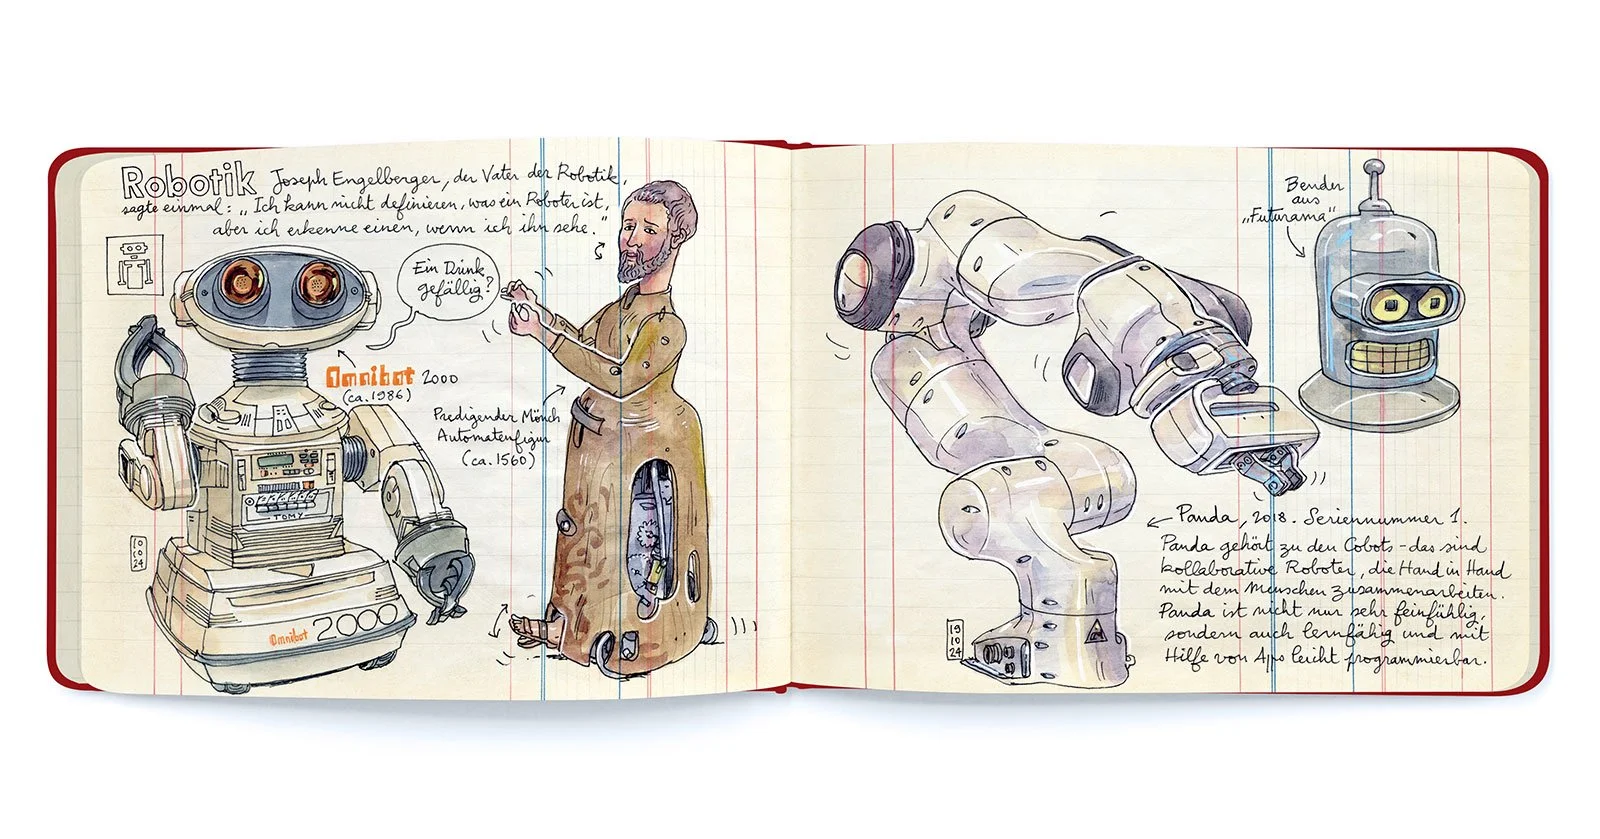 Robotik Joseph Engelberger, der Vater der Robotik,
sagte einmal: „Ich kann nicht definieren, was ein Roboter ist,
aber ich erkenne einen, wenn ich ihn sehe."
Ein Drink
gefällig?
Omnibot 2000
(ca. 1986)
Predigender Mönch
Automatenfigur
(ca. 1560)
TOMY
10
10
24
Omnibot 2000
Bender
aus
„Futurama"
Panda, 2018. Seriennummer 1.
Panda gehört zu den Cobots - das sind
kollaborative Roboter, die Hand in Hand
mit dem Menschen zusammenarbeiten.
Panda ist nicht nur sehr feinfühlig,
sondern auch lernfähig und mit
Hilfe von Apps leicht programmierbar.
19
10
24